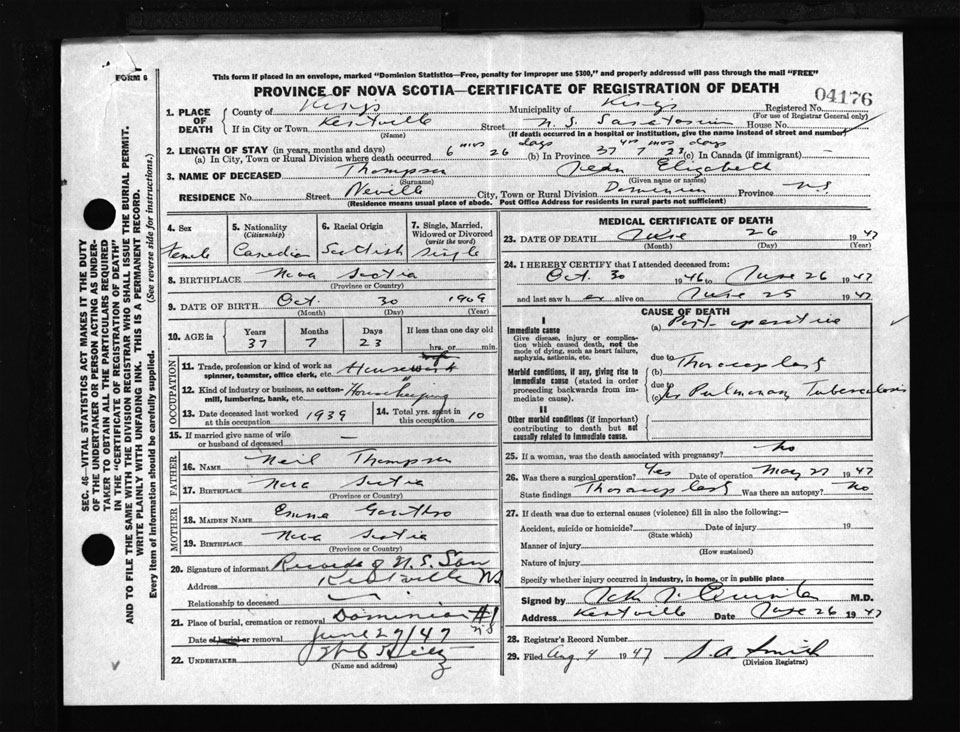 FORM 6
This form if placed in an envelope, marked "Dominion Statistics—Free, penalty for improper use $300," and properly addressed will pass through the mail "FREE"
PROVINCE OF NOVA SCOTIA—CERTIFICATE OF REGISTRATION OF DEATH
04176
1. PLACE OF DEATH County of Kings Municipality of Kings Registered No.
(For use of Registrar General only)
If in City or Town Kentville Street N. S. Sanatorium House No.
(Name) (If death occurred in a hospital or institution, give the name instead of street and number)
2. LENGTH OF STAY (in years, months and days) mos days yrs mos days
(a) In City, Town or Rural Division where death occurred 6 26 (b) In Province 37 7 23 (c) In Canada (if immigrant) —
3. NAME OF DECEASED Thompson Jean Elizabeth
(Surname) (Given name or names)
RESIDENCE No. Street Neville City, Town or Rural Division Dominion Province NS
(Residence means usual place of abode. Post Office Address for residents in rural parts not sufficient)
4. Sex Female
5. Nationality (Citizenship) Canadian
6. Racial Origin Scottish
7. Single, Married, Widowed or Divorced (write the word) Single
8. BIRTHPLACE Nova Scotia
(Province or Country)
9. DATE OF BIRTH Oct. 30 1909
(Month) (Day) (Year)
10. AGE in Years Months Days If less than one day old
37 7 23 hrs. or min.
OCCUPATION
11. Trade, profession or kind of work as spinner, teamster, office clerk, etc. Housework
12. Kind of industry or business, as cotton-mill, lumbering, bank, etc. Housekeeping
13. Date deceased last worked at this occupation 1939 14. Total yrs. spent in this occupation 10
15. If married give name of wife or husband of deceased —
FATHER
16. Name Neil Thompson
17. Birthplace Nova Scotia
(Province or Country)
MOTHER
18. Maiden Name Emma
19. Birthplace Nova Scotia
(Province or Country)
20. Signature of informant Records of N. S. San
Address Kentville NS
Relationship to deceased
21. Place of burial, cremation or removal Dominion #1 NS
Date of burial or removal June 27/47
22. UNDERTAKER
(Name and address)
MEDICAL CERTIFICATE OF DEATH
23. DATE OF DEATH June 26 1947
(Month) (Day) (Year)
24. I HEREBY CERTIFY that I attended deceased from:
Oct. 30 1946 to June 26 1947
and last saw her alive on June 25 1947
CAUSE OF DEATH
I
Immediate cause (a) Post-operative
Give disease, injury or complication which caused death, not the mode of dying, such as heart failure, asphyxia, asthenia, etc.
due to
Morbid conditions, if any, giving rise to immediate cause (stated in order proceeding backwards from immediate cause). (b) Thoracoplasty
due to
(c) Pulmonary Tuberculosis
II
Other morbid conditions (if important) contributing to death but not causally related to immediate cause.
25. If a woman, was the death associated with pregnancy? No
26. Was there a surgical operation? Yes Date of operation May 27 1947
State findings Thoracoplasty Was there an autopsy? No
27. If death was due to external causes (violence) fill in also the following:—
Accident, suicide or homicide? Date of injury 19
(State which)
Manner of injury
(How sustained)
Nature of injury
Specify whether injury occurred in industry, in home, or in public place
Signed by M.D.
Address Kentville Date June 26 1947
28. Registrar's Record Number
29. Filed Aug. 4 1947 S. A. Smith
(Division Registrar)
SEC. 46—VITAL STATISTICS ACT MAKES IT THE DUTY
OF THE UNDERTAKER OR PERSON ACTING AS UNDER-
TAKER TO OBTAIN ALL THE PARTICULARS REQUIRED
IN THE "CERTIFICATE OF REGISTRATION OF DEATH"
AND TO FILE THE SAME WITH THE DIVISION REGISTRAR WHO SHALL ISSUE THE BURIAL PERMIT.
WRITE PLAINLY WITH UNFADING INK. THIS IS A PERMANENT RECORD.
Every item of information should be carefully supplied. (See reverse side for instructions.)